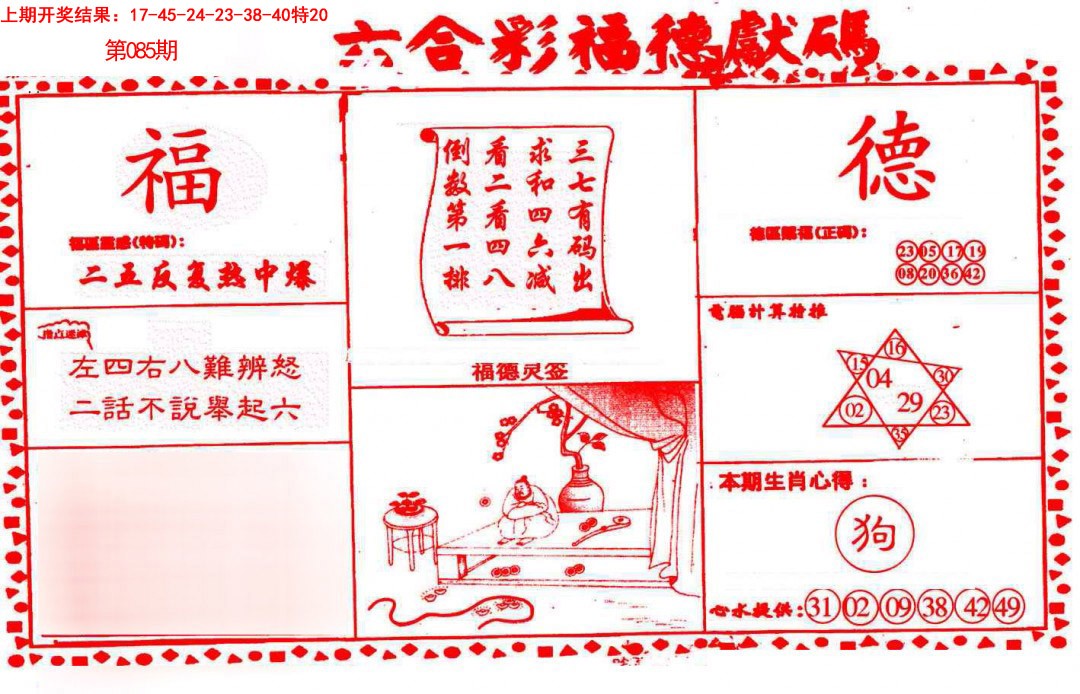 上期开奖结果：17-45-24-23-38-40特20
第085期
六合彩福德獻碼
福
福區靈感(特碼)：
二五反复熱中爆
指点迷津
左四右八難辨怒
二話不說舉起六
三七有码出
求和四六减
看二看四八
倒数第一排
福德灵签
德
德區賜福(正碼)：
23 05 17 19
08 20 36 42
電腦計算特推
16
15 30
04
29
02 23
35
本期生肖心得：
狗
心水提供：31 02 09 38 42 49